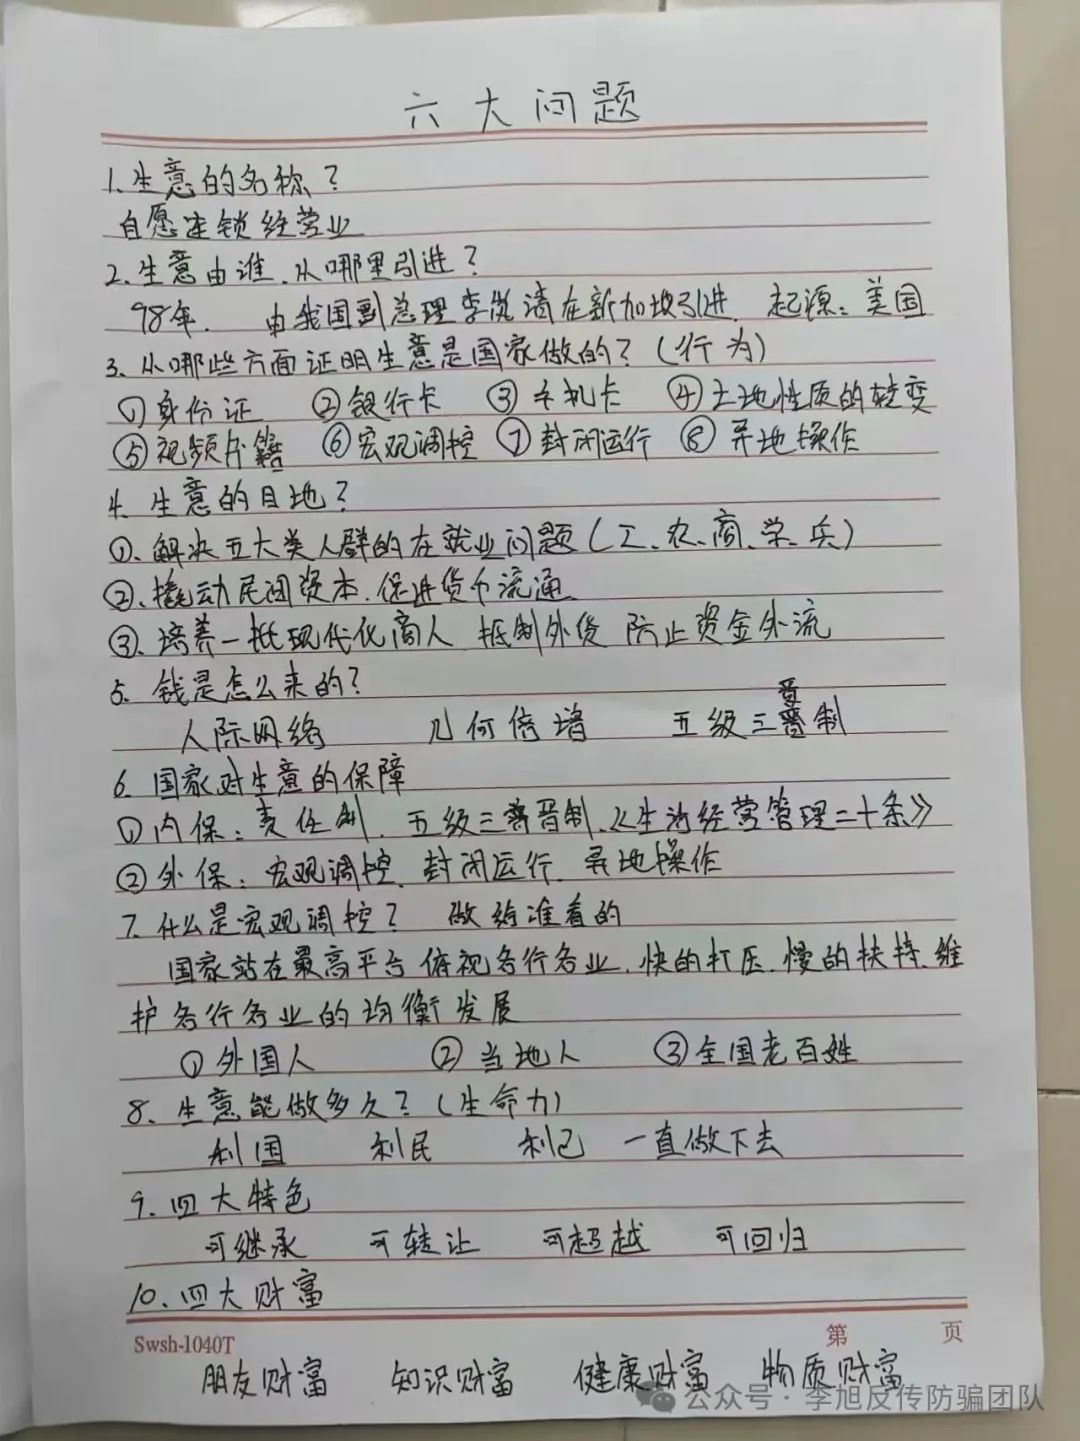 六大问题
1.生意的名称？
自愿连锁经营业
2.生意由谁.从哪里引进？
98年. 由我国副总理李岚清在新加坡引进. 起源：美国
3.从哪些方面证明生意是国家做的？（行为）
①身份证 ②银行卡 ③手机卡 ④土地性质的转变
⑤视频片籍 ⑥宏观调控 ⑦封闭运行 ⑧异地操作
4.生意的目地？
①.解决五大类人群的在就业问题（工、农、商、学、兵）
②.撬动民间资本.促进货币流通
③.培养一批现代化商人 抵制外货 防止资金外流
5.钱是怎么来的？
人际网络 几何倍增 五级三晋制
6.国家对生意的保障
①内保：责任制. 五级三晋制.《生活经营管理二十条》
②外保：宏观调控.封闭运行.异地操作
7.什么是宏观调控？ 做给谁看的
国家站在最高平台俯视各行各业.快的打压.慢的扶持.维
护各行各业的均衡发展
①外国人 ②当地人 ③全国老百姓
8.生意能做多久？（生命力）
利国 利民 利己 一直做下去
9.四大特色
可继承 可转让 可超越 可回归
10.四大财富
Swsh-1040T 第 页
朋友财富 知识财富 健康财富 物质财富
公众号·李旭反传防骗团队